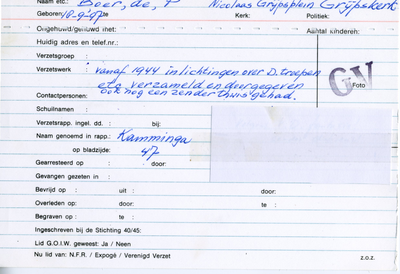 Naam etc.: Boer, de, P Nicolaas Grijpsplein Grijpskerk
Geboren 18-9-'97 te Kerk: Politiek:
Ongehuwd/gehuwd met: Aantal kinderen:
Huidig adres en telef.nr.:
Verzetsgroep :
Verzetswerk : vanaf 1944 inlichtingen over D. troepen
etc verzameld en doorgegeven
Contactpersonen: ook nog een zender thuis gehad.
GV
Foto
Schuilnamen :
Verzetsrapp. ingel. dd. : bij:
Naam genoemd in rapp.: Kamminga
op bladzijde: 47
Gearresteerd op : door:
Gevangen gezeten in :
Bevrijd op : uit : door:
Overleden op: door: te :
Begraven op : te :
Ingeschreven bij de Stichting 40/45:
Lid G.O.I.W. geweest: Ja / Neen
Nu lid van: N.F.R. / Expogé / Verenigd Verzet z.o.z.